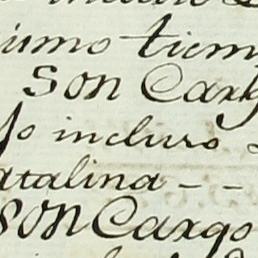 iumo tiem
Son Carg
Jo incluso
atalina - -
Son Cargo